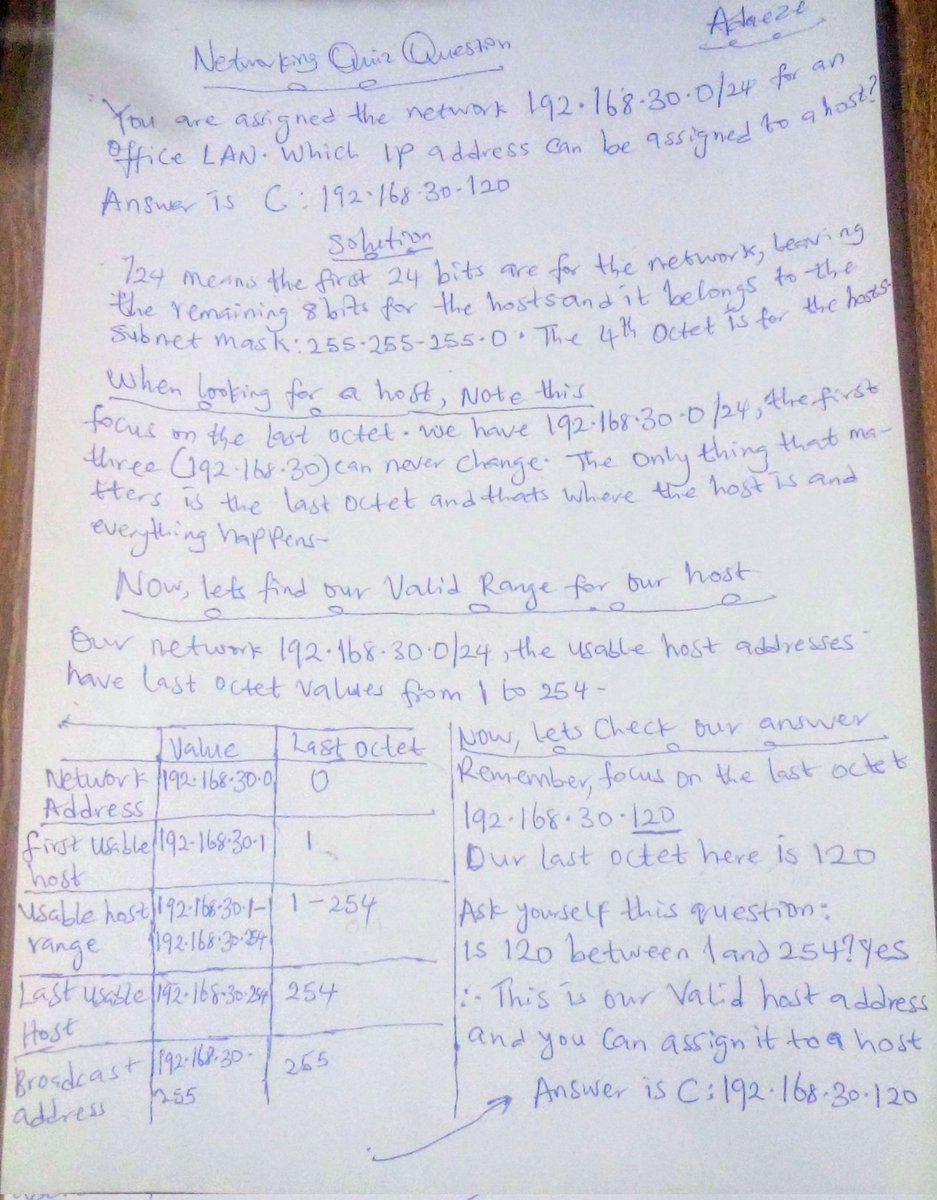 Adaeze
Networking Quiz Question
You are assigned the network 192.168.30.0/24 for an
Office LAN. Which IP address can be assigned to a host?
Answer is C: 192.168.30.120
Solution
/24 means the first 24 bits are for the network, leaving
the remaining 8bits for the hosts and it belongs to the
Subnet mask: 255.255-255.0. The 4th Octet is for the hosts.
When looking for a host, Note this
focus on the last octet. We have 192.168.30.0/24, the first
three (192.168.30) can never change. The only thing that ma-
tters is the last octet and thats where the host is and
everything happens-
Now, lets find our Valid Range for our host
Our network 192.168.30.0/24, the usable host addresses
have last octet values from 1 to 254-
Value Last octet
Network 192.168.30.0 0
Address
first usable 192.168.30.1 1
host
usable host 192.168.30.1- 1-254
range 192.168.30.254
Last usable 192.168.30.254 254
Host
Broadcast 192.168.30. 255
address 255
Now, lets Check our answer
Remember, focus on the last octet
192.168.30.120
Our last octet here is 120
Ask yourself this question:
Is 120 between 1 and 254? Yes
∴ This is our Valid host address
and you can assign it to a host
Answer is C: 192.168.30.120